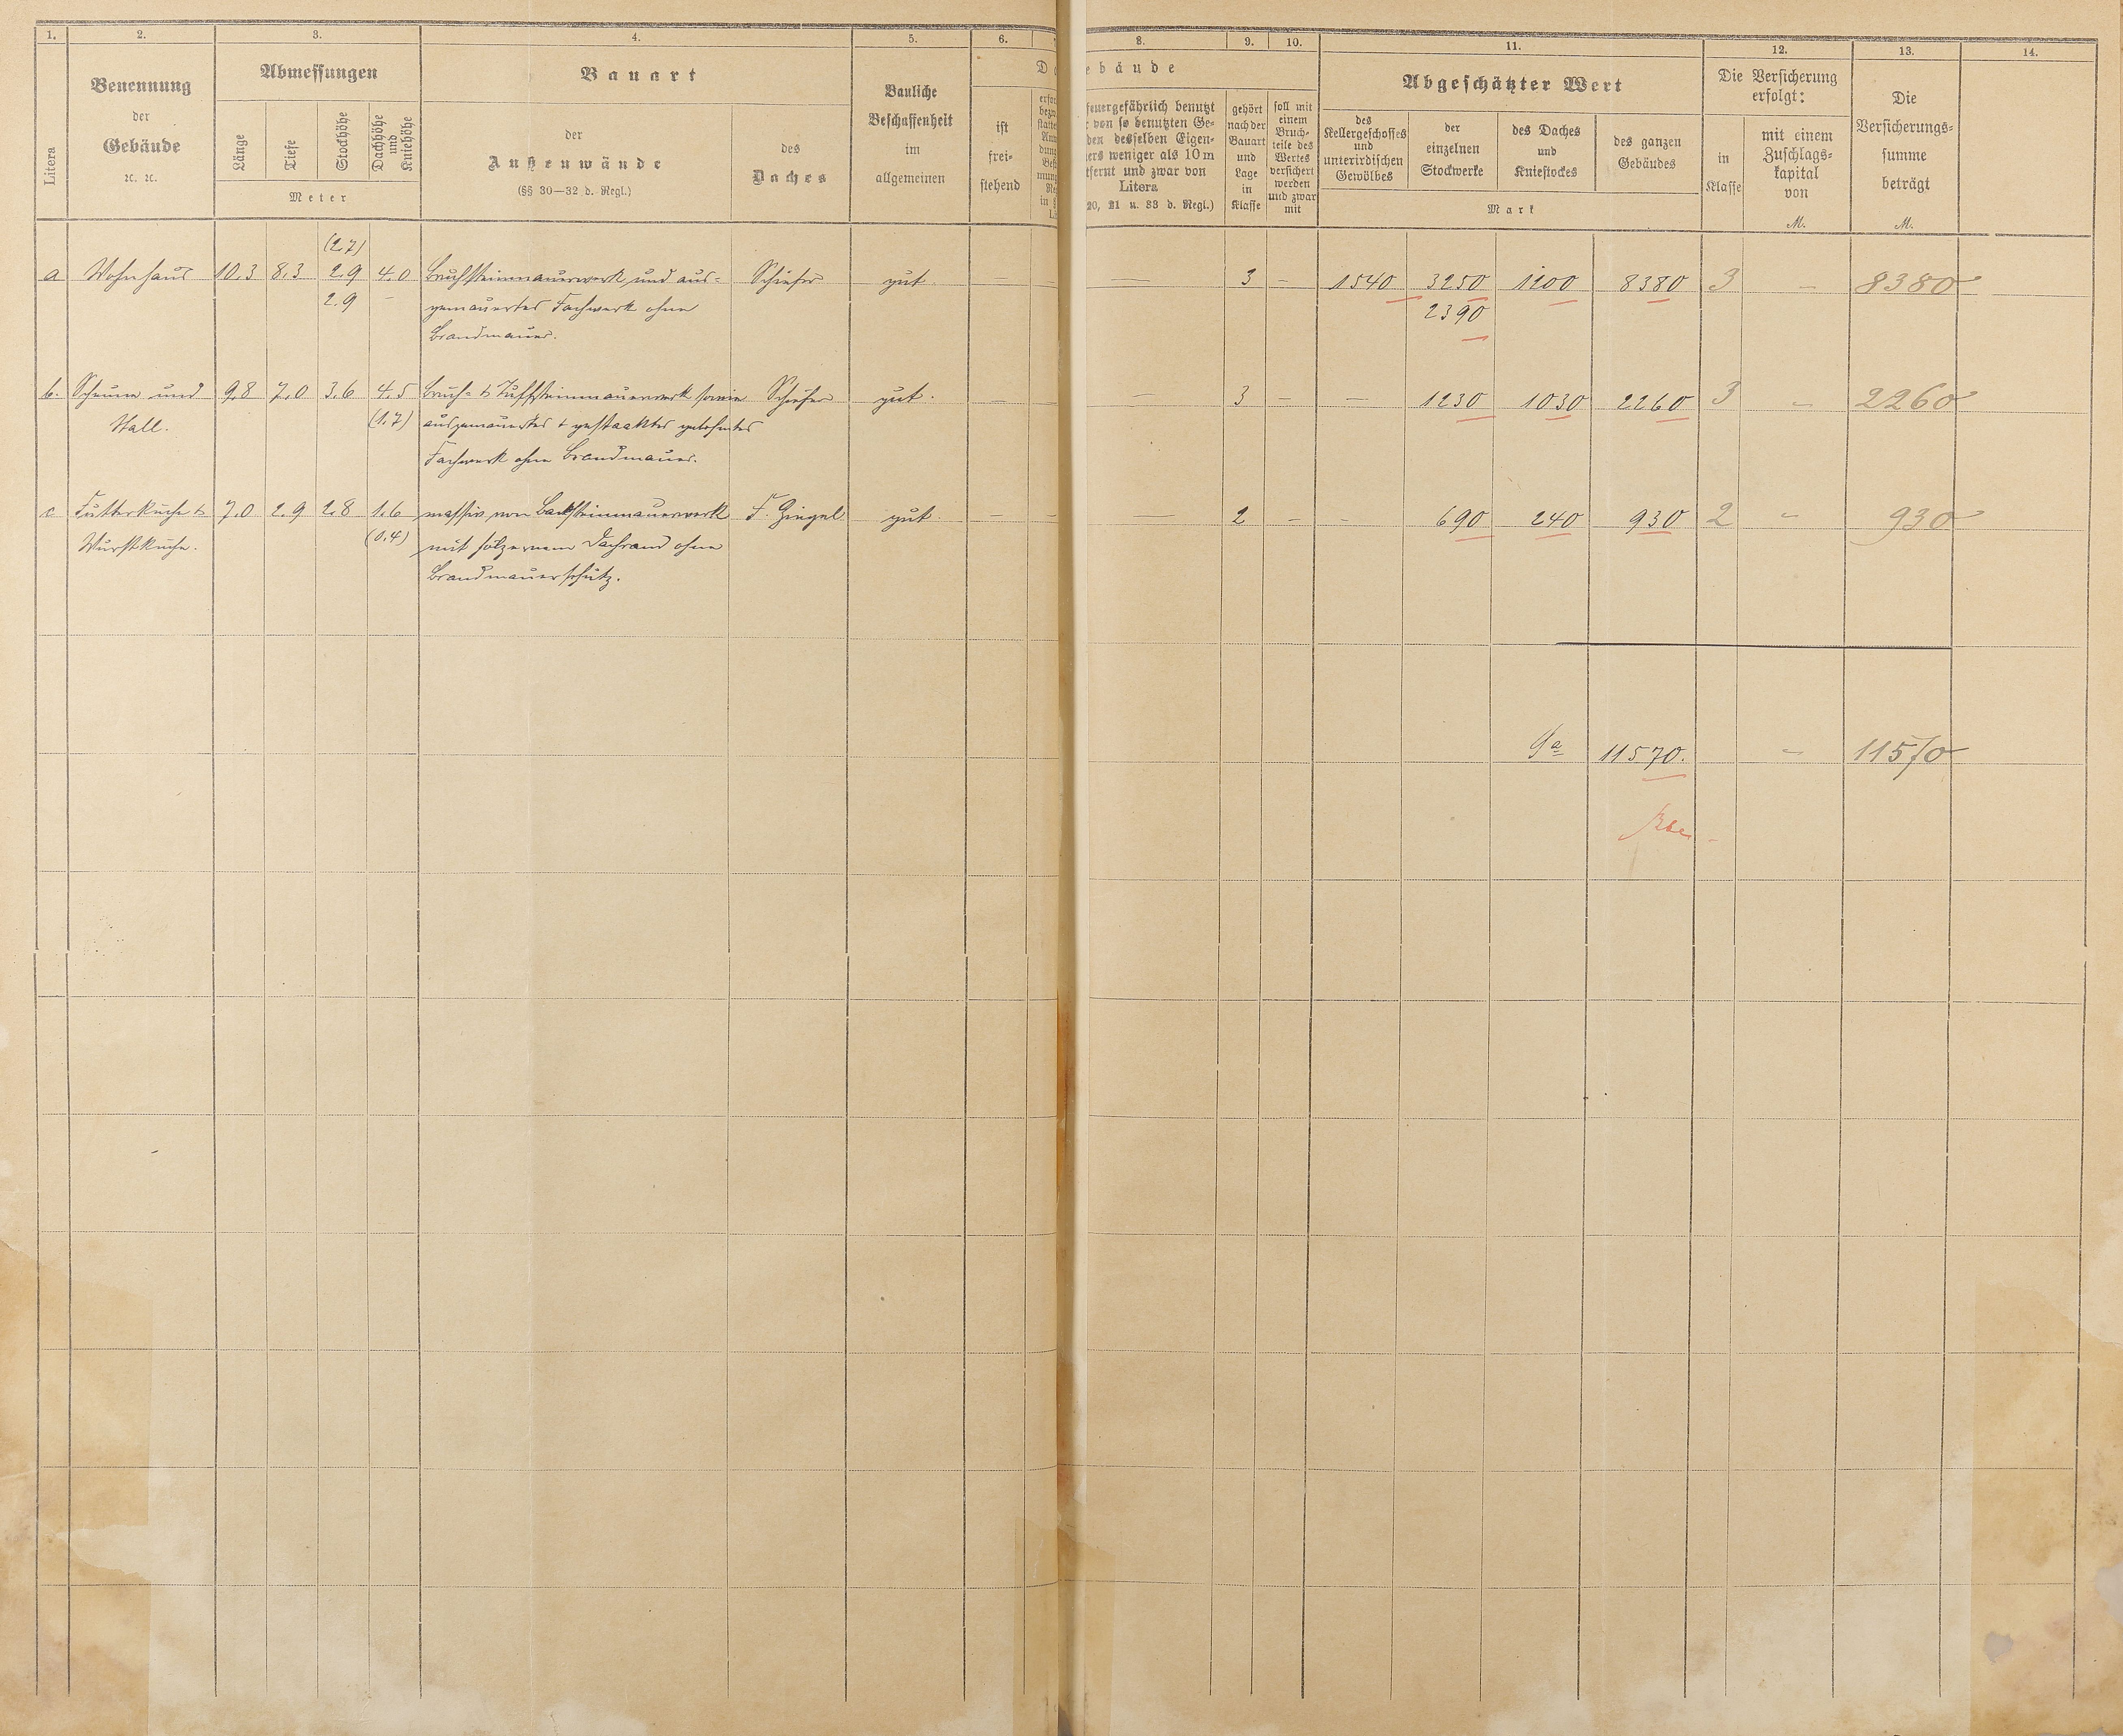 1. 2. 3. 4. 5. 6. 8. 9. 10. 11. 12. 13. 14.
Litera
Benennung
der
Gebäude
ꝛc. ꝛc.
Abmessungen
Länge
Tiefe
Stockhöhe
Dachhöhe
und
Kniehöhe
Meter
Bauart
der
Außenwände
(§§ 30—32 d. Regl.)
des
Daches
Bauliche
Beschaffenheit
im
allgemeinen
ist
frei-
stehend
ebäude
feuergefährlich benutzt
von so benutzten Ge-
den desselben Eigen-
ers weniger als 10 m
tfernt und zwar von
Litera
20, 21 u. 33 d. Regl.)
gehört
nach der
Bauart
und
Lage
in
Klasse
soll mit
einem
Bruch-
teile des
Wertes
versichert
werden
und zwar
mit
Abgeschätzter Wert
des
Kellergeschosses
und
unterirdischen
Gewölbes
der
einzelnen
Stockwerke
des Daches
und
Kniestockes
des ganzen
Gebäudes
Mark
Die Versicherung
erfolgt:
in
Klasse
mit einem
Zuschlags-
kapital
von
M.
Die
Versicherungs-
summe
beträgt
M.
(2.7)
a Wohnhaus 10.3 8.3 2.9 4.0 Bruchsteinmauerwerk und aus- Schiefer gut. — — 3 — 1540 3250 1200 8380 3 — 8380
2.9 — gemauertes Fachwerk ohne 2390
Brandmauer.
b. Scheune und 9.8 7.0 3.6 4.5 Bruch- & Tuffsteinmauerwerk sowie Schiefer gut. — — 3 — — 1230 1030 2260 3 — 2260
Stall. (1.7) ausgemauertes & gestaaktes gelehmtes
Fachwerk ohne Brandmauer.
c Futterküche & 7.0 2.9 2.8 1.6 massiv von Backsteinmauerwerk F. Ziegel gut. — — 2 — — 690 240 930 2 — 930
Wurstküche. (0.4) mit hölzernem Dachrand ohne
Brandmauerschutz.
Sa 11570. — 11570